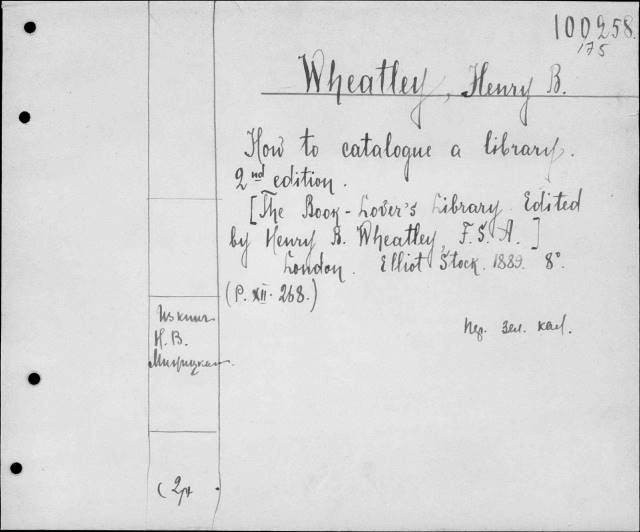 100258.
175
Wheatley, Henry B.
How to catalogue a library.
2nd edition.
[The Book-Lover's Library. Edited
by Henry B. Wheatley, F.S.A.]
London. Elliot Stock. 1889. 8°.
(P. XII. 268.)
Из книг
Н. В.
пер. зел. кал.
(2